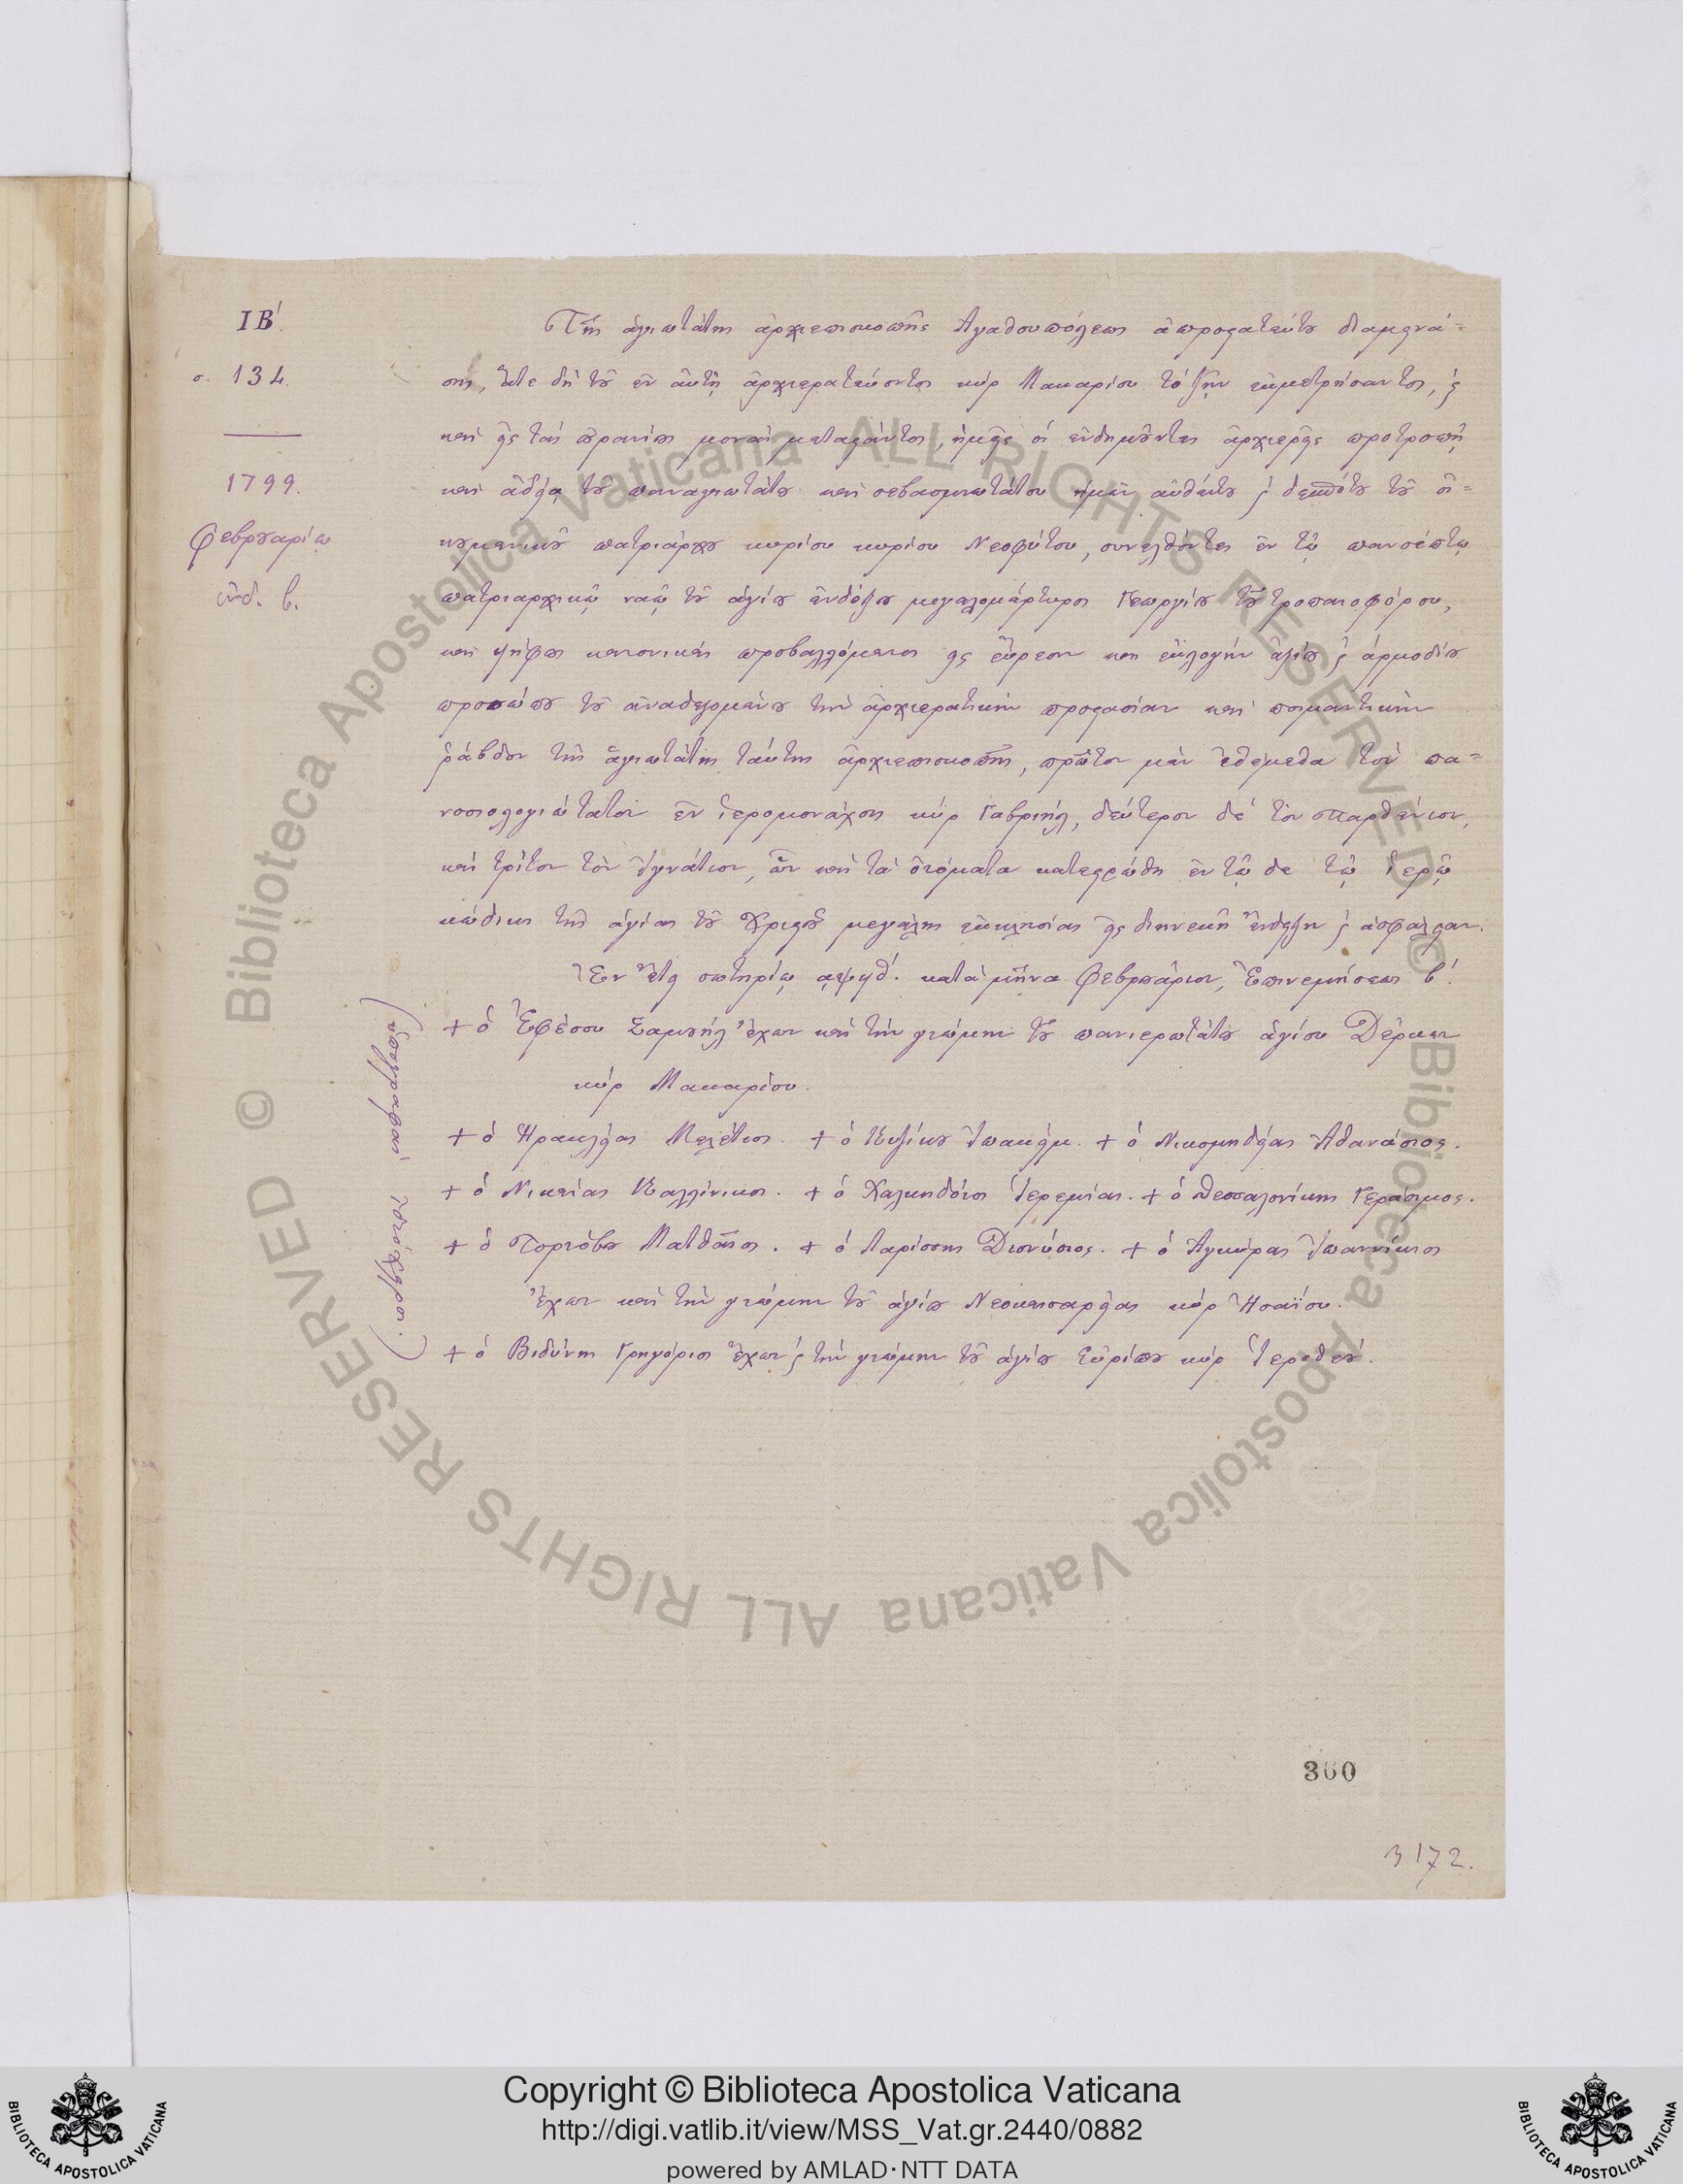 ΙΒ΄.
σ. 134.
1799.
Φεβρουαρίῳ
ἰνδ. β.
Τῆς ἁγιωτάτης ἀρχιεπισκοπῆς Ἀγαθουπόλεως ἀπροστατεύτου διαμεινά=
σης, ἅτε δὴ τοῦ ἐν αὐτῇ ἀρχιερατεύοντος κὺρ Μακαρίου τὸ ζῆν ἐκμετρήσαντος, ϗ
καὶ εἰς τὰς οὐρανίους μονὰς μεταστάντος, ἡμεῖς οἱ ἐνδημοῦντες ἀρχιερεῖς προτροπῇ
καὶ ἀδείᾳ τοῦ παναγιωτάτου καὶ σεβασμιωτάτου ἡμῶν αὐθέντου ϗ δεσπότου τοῦ οἰ=
κουμενικοῦ πατριάρχου κυρίου κυρίου Νεοφύτου, συνελθόντες ἐν τῷ πανσέπτῳ
πατριαρχικῷ ναῷ τοῦ ἁγίου ἐνδόξου μεγαλομάρτυρος Γεωργίου τοῦ τροπαιοφόρου,
καὶ ψήφους κανονικὰς προβαλλόμενοι εἰς εὕρεσιν καὶ ἐκλογὴν ἀξίου ϗ ἁρμοδίου
προσώπου τοῦ ἀναδεξομένου τὴν ἀρχιερατικὴν προστασίαν καὶ ποιμαντικὴν
ῥάβδον τῆς ἁγιωτάτης ταύτης ἀρχιεπισκοπῆς, πρῶτον μὲν ἐθέμεθα τὸν πα=
νοσιολογιώτατον ἐν ἱερομονάχοις κὺρ Γαβριήλ, δεύτερον δὲ τὸν Παρθένιον,
καὶ τρίτον τὸν Ἰγνάτιον, ὧν καὶ τὰ ὀνόματα κατεστρώθη ἐν τῷ δε τῷ ἱερῷ
κώδικι τῆς ἁγίας τοῦ Χριστοῦ μεγάλης ἐκκλησίας εἰς διηνεκῆ ἔνδειξιν ϗ ἀσφάλειαν.
Ἐν ἔτει σωτηρίῳ αψϟθ΄. κατὰ μῆνα Φεβρουάριον, Ἐπινεμήσεως β΄.
+ ὁ Ἐφέσου Σαμουὴλ ἔχων καὶ τὴν γνώμην τοῦ πανιερωτάτου ἁγίου Δέρκων
κὺρ Μακαρίου.
+ ὁ Ἡρακλείας Μελέτιος. + ὁ Κυζίκου Ἰωακείμ. + ὁ Νικομηδείας Ἀθανάσιος.
+ ὁ Νικαίας Καλλίνικος. + ὁ Χαλκηδόνος Ἱερεμίας. + ὁ Θεσσαλονίκης Γεράσιμος.
+ ὁ Τορνόβου Ματθαῖος. + ὁ Λαρίσσης Διονύσιος. + ὁ Ἀγκύρας Ἰωαννίκιος
ἔχων καὶ τὴν γνώμην τοῦ ἁγίου Νεοκαισαρείας κὺρ Ἡσαΐου.
+ ὁ Βιδύνης Γρηγόριος ἔχων ϗ τὴν γνώμην τοῦ ἁγίου Εὐρίπου κὺρ Ἱεροθέου.
360
3172.
Copyright © Biblioteca Apostolica Vaticana
http://digi.vatlib.it/view/MSS_Vat.gr.2440/0882
powered by AMLAD·NTT DATA
BIBLIOTECA APOSTOLICA VATICANA
BIBLIOTECA APOSTOLICA VATICANA
© Biblioteca Apostolica Vaticana ALL RIGHTS RESERVED
© Biblioteca Apostolica Vaticana ALL RIGHTS RESERVED